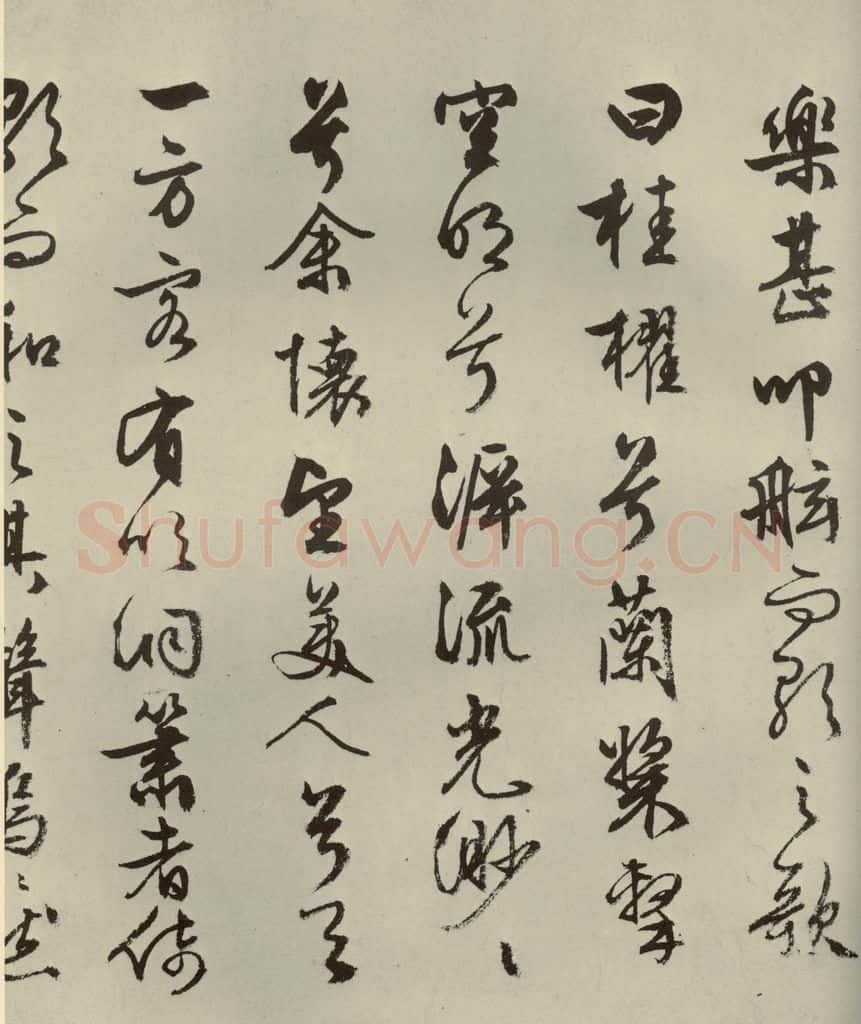 樂甚叩舷而歌之歌
曰桂櫂兮蘭槳擊
空明兮溯流光渺〻
兮余懷望美人兮天
一方客有吹洞簫者倚
歌而和之其聲嗚〻然
Shufawang.CN